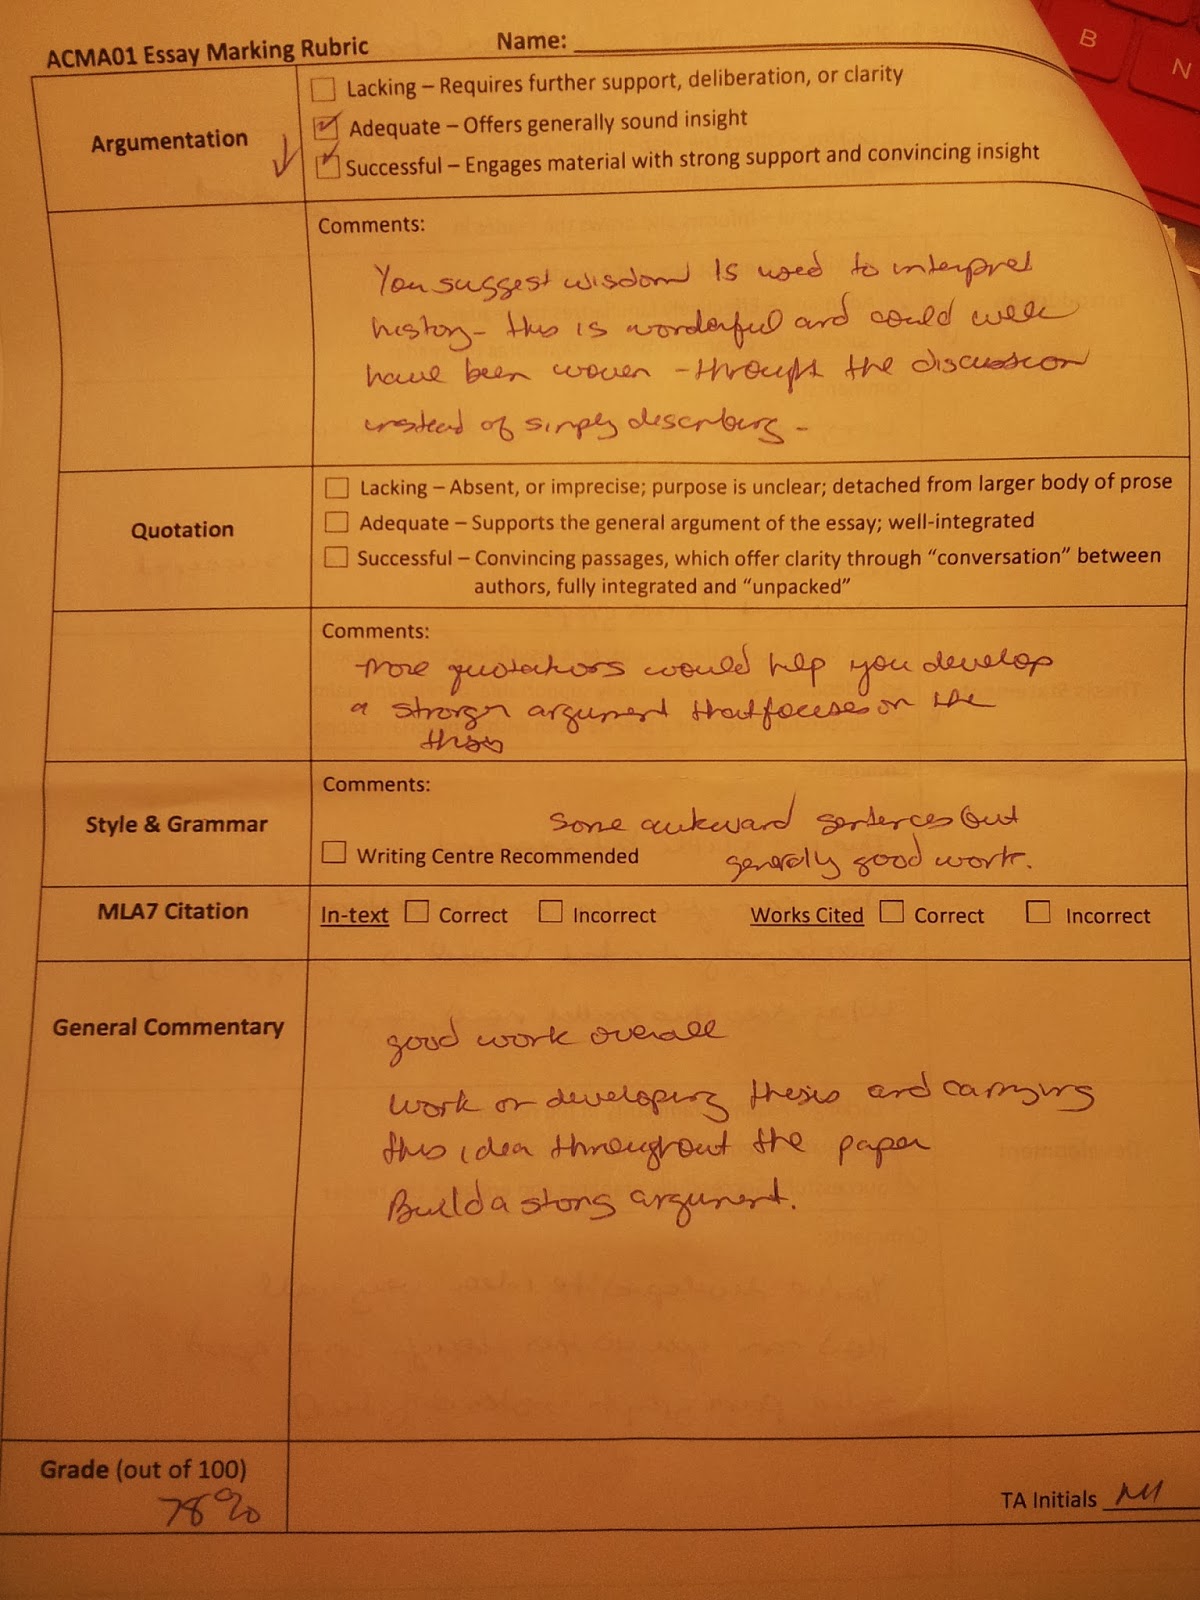 ACMA01 Essay Marking Rubric Name:
Argumentation
Lacking – Requires further support, deliberation, or clarity
Adequate – Offers generally sound insight
Successful – Engages material with strong support and convincing insight
Comments:
You suggest wisdom is used to interpret
history – this is wonderful and could well
have been woven – through the discussion
instead of simply describing –
Quotation
Lacking – Absent, or imprecise; purpose is unclear; detached from larger body of prose
Adequate – Supports the general argument of the essay; well-integrated
Successful – Convincing passages, which offer clarity through “conversation” between
authors, fully integrated and “unpacked”
Comments:
More quotations would help you develop
a stronger argument that focuses on the
thesis
Style & Grammar
Comments:
Some awkward sentences but
Writing Centre Recommended
generally good work.
MLA7 Citation In-text Correct Incorrect Works Cited Correct Incorrect
General Commentary
good work overall
Work on developing thesis and carrying
this idea throughout the paper
Build a strong argument.
Grade (out of 100)
78%
TA Initials
B
N